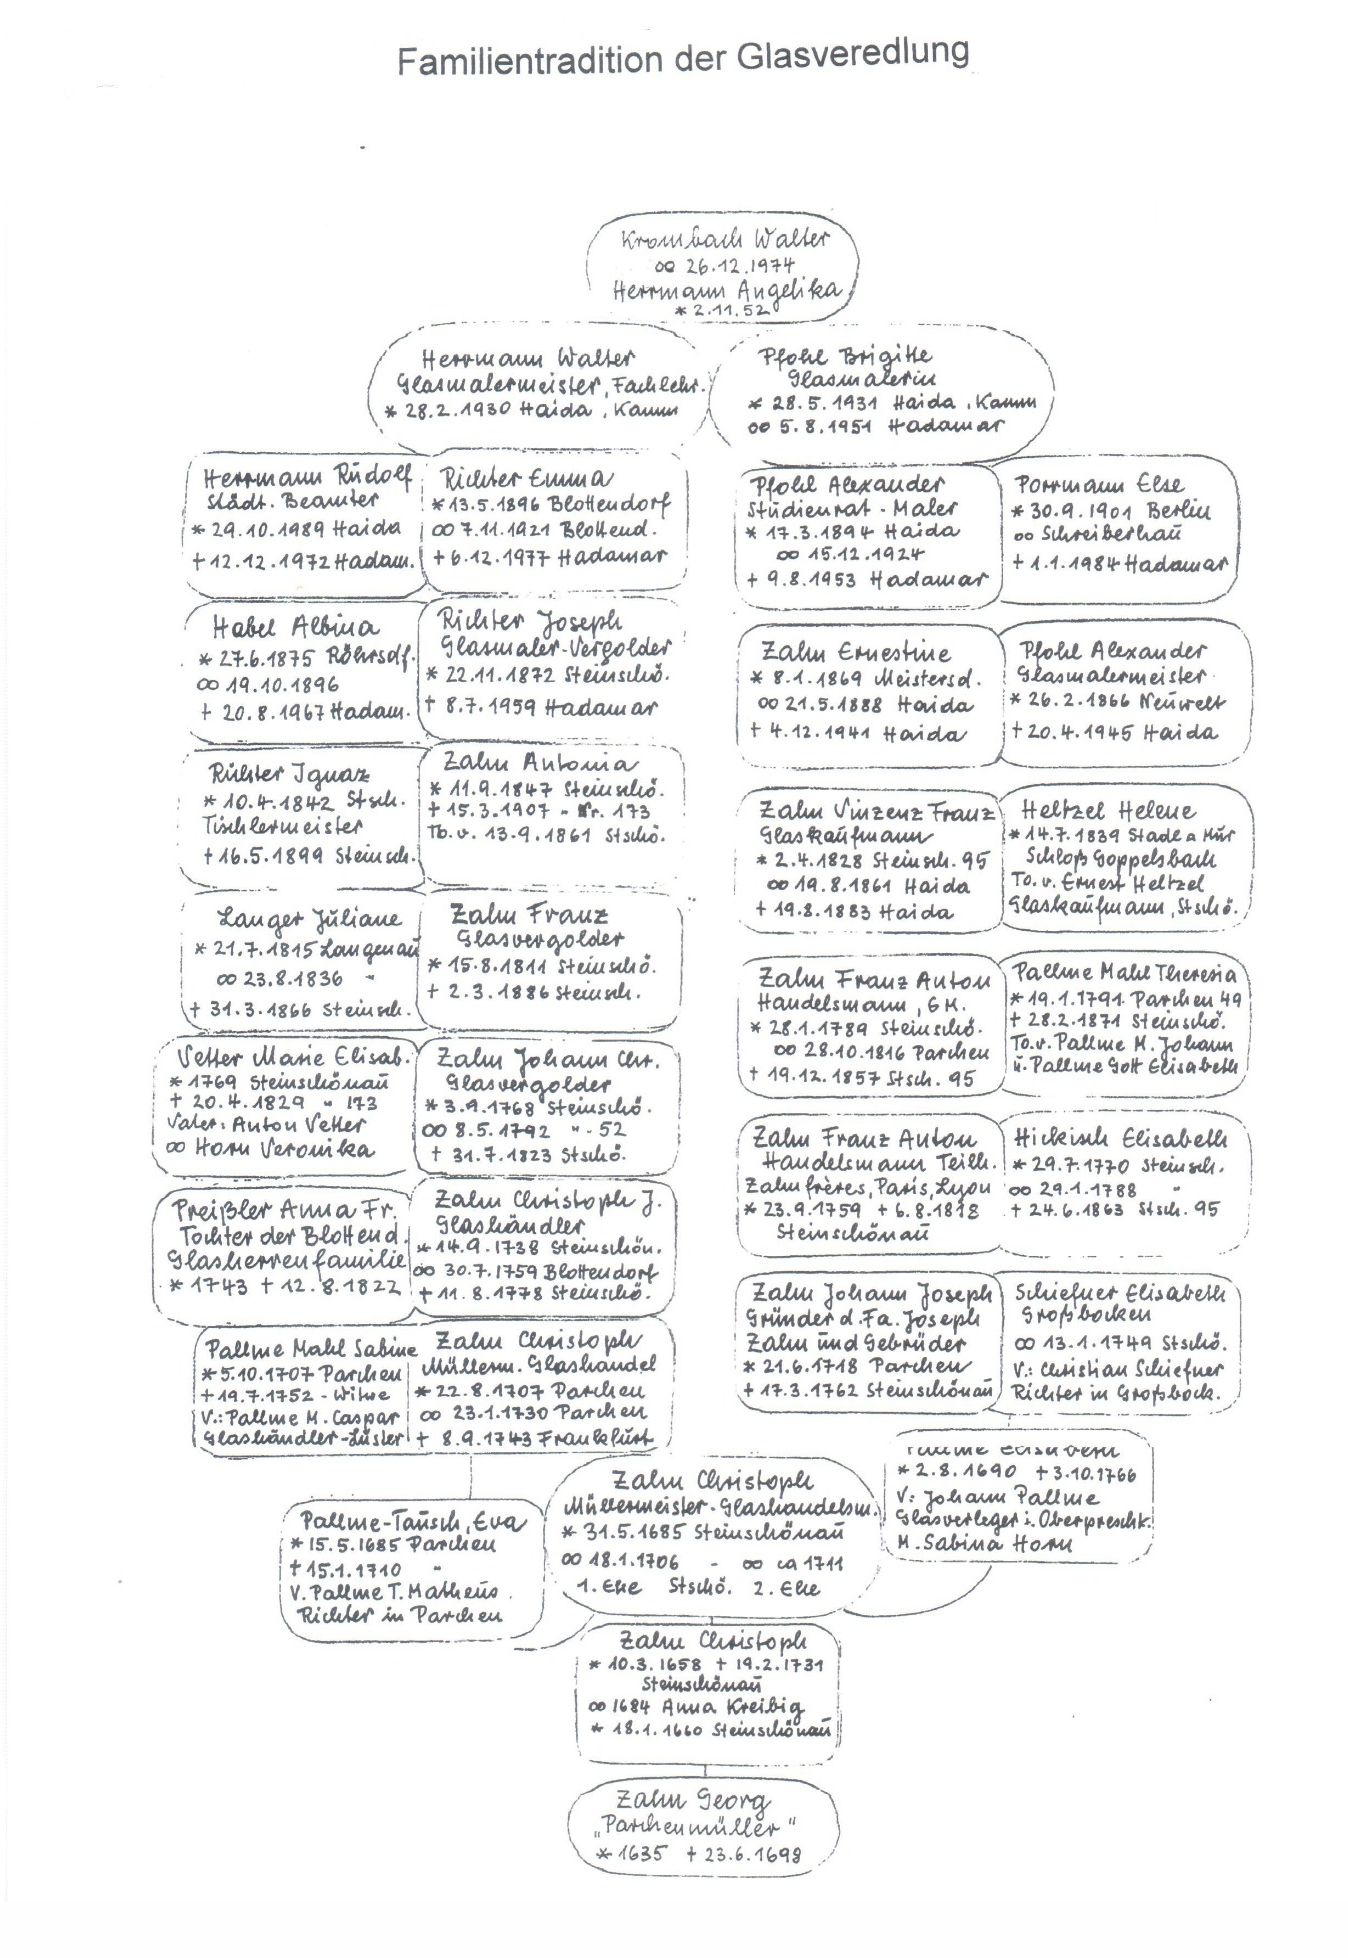 Familientradition der Glasveredlung
Krombach Walter
∞ 26.12.1974
Herrmann Angelika
* 2.11.52
Herrmann Walter
Glasmalermeister, Fachlehr.
* 28.2.1930 Haida, Kamn
Pfohl Brigitte
Glasmalerin
* 28.5.1931 Haida, Kamn
∞ 5.8.1951 Hadamar
Herrmann Rudolf
Städt. Beamter
* 29.10.1989 Haida
+ 12.12.1972 Hadam.
Richter Emma
* 13.5.1896 Blottendorf
∞ 7.11.1921 Blottend.
+ 6.12.1977 Hadamar
Pfohl Alexander
Studienrat - Maler
* 17.3.1894 Haida
∞ 15.12.1924
+ 9.8.1953 Hadamar
Porrmann Else
* 30.9.1901 Berlin
∞ Schreiberhau
+ 1.1.1984 Hadamar
Habel Albina
* 27.6.1875 Röhrsdf.
∞ 19.10.1896
+ 20.8.1967 Hadam.
Richter Joseph
Glasmaler-Vergolder
* 22.11.1872 Steinschö.
+ 8.7.1959 Hadamar
Zahn Ernestine
* 8.1.1869 Meistersd.
∞ 21.5.1888 Haida
+ 4.12.1941 Haida
Pfohl Alexander
Glasmalermeister
* 26.2.1866 Neuwelt
+ 20.4.1945 Haida
Richter Ignaz
* 10.4.1842 Stsch.
Tischlermeister
+ 16.5.1899 Steinsch.
Zahn Antonia
* 11.9.1847 Steinschö.
+ 15.3.1907 - Nr. 173
Tb. v. 13.9.1861 Stschö.
Zahn Vinzenz Franz
Glaskaufmann
* 2.4.1828 Steinsch. 95
∞ 19.8.1861 Haida
+ 19.8.1883 Haida
Heltzel Helene
* 14.7.1839 Stadl a Mur
Schloß Goppelsbach
To. v. Ernest Heltzel
Glaskaufmann, Stschö.
Langer Juliane
* 21.7.1815 Langenau
∞ 23.8.1836 "
+ 31.3.1866 Steinsch.
Zahn Franz
Glasvergolder
* 15.8.1811 Steinschö.
+ 2.3.1886 Steinsch.
Zahn Franz Anton
Handelsmann, GM.
* 28.1.1789 Steinschö.
∞ 28.10.1816 Parchen
+ 19.12.1857 Stsch. 95
Pallme Mahl Theresia
* 19.1.1791 Parchen 49
+ 28.2.1871 Steinschö.
To. v. Pallme M. Johann
u. Pallme Gott Elisabeth
Vetter Marie Elisab.
* 1769 Steinschönau
+ 20.4.1829 " 173
Vater: Anton Vetter
∞ Horn Veronika
Zahn Johann Chr.
Glasvergolder
* 3.9.1768 Steinschö.
∞ 8.5.1792 " - 52
+ 31.7.1823 Stschö.
Zahn Franz Anton
Handelsmann Teilh.
Zahn frères, Paris, Lyon
* 23.9.1759 + 6.8.1818
Steinschönau
Hickisch Elisabeth
* 29.7.1770 Steinsch.
∞ 29.1.1788 "
+ 24.6.1863 Stsch. 95
Preißler Anna Fr.
Tochter der Blottend.
Glasherrenfamilie
* 1743 + 12.8.1822
Zahn Christoph J.
Glashändler
* 14.9.1738 Steinschön.
∞ 30.7.1759 Blottendorf
+ 11.8.1778 Steinschö.
Zahn Johann Joseph
Gründer d. Fa. Joseph
Zahn und Gebrüder
* 21.6.1718 Parchen
+ 17.3.1762 Steinschönau
Schiefner Elisabeth
Großbocken
∞ 13.1.1749 Stschö.
V.: Christian Schiefner
Richter in Großbock.
Pallme Mahl Sabine
* 5.10.1707 Parchen
+ 19.7.1752 - Witwe
V.: Pallme M. Caspar
Glashändler-Lüster
Zahn Christoph
Müllerm. Glashandel
* 22.8.1707 Parchen
∞ 23.1.1730 Parchen
+ 8.9.1743 Frankfurt
Pallme-Tausch, Eva
* 15.5.1685 Parchen
+ 15.1.1710 "
V. Pallme T. Matheus
Richter in Parchen
Zahn Christoph
Müllermeister-Glashandelsm.
* 31.5.1685 Steinschönau
∞ 18.1.1706 - ∞ ca 1711
1. Ehe Stschö. 2. Ehe
Pallme Elisabeth
* 2.8.1690 + 3.10.1766
V: Johann Pallme
Glasverleger i. Oberpreschk.
M. Sabina Horn
Zahn Christoph
* 10.3.1658 + 19.2.1731
Steinschönau
∞ 1684 Anna Kreibig
* 18.1.1660 Steinschönau
Zahn Georg
„Parchenmüller"
* 1635 + 23.6.1698